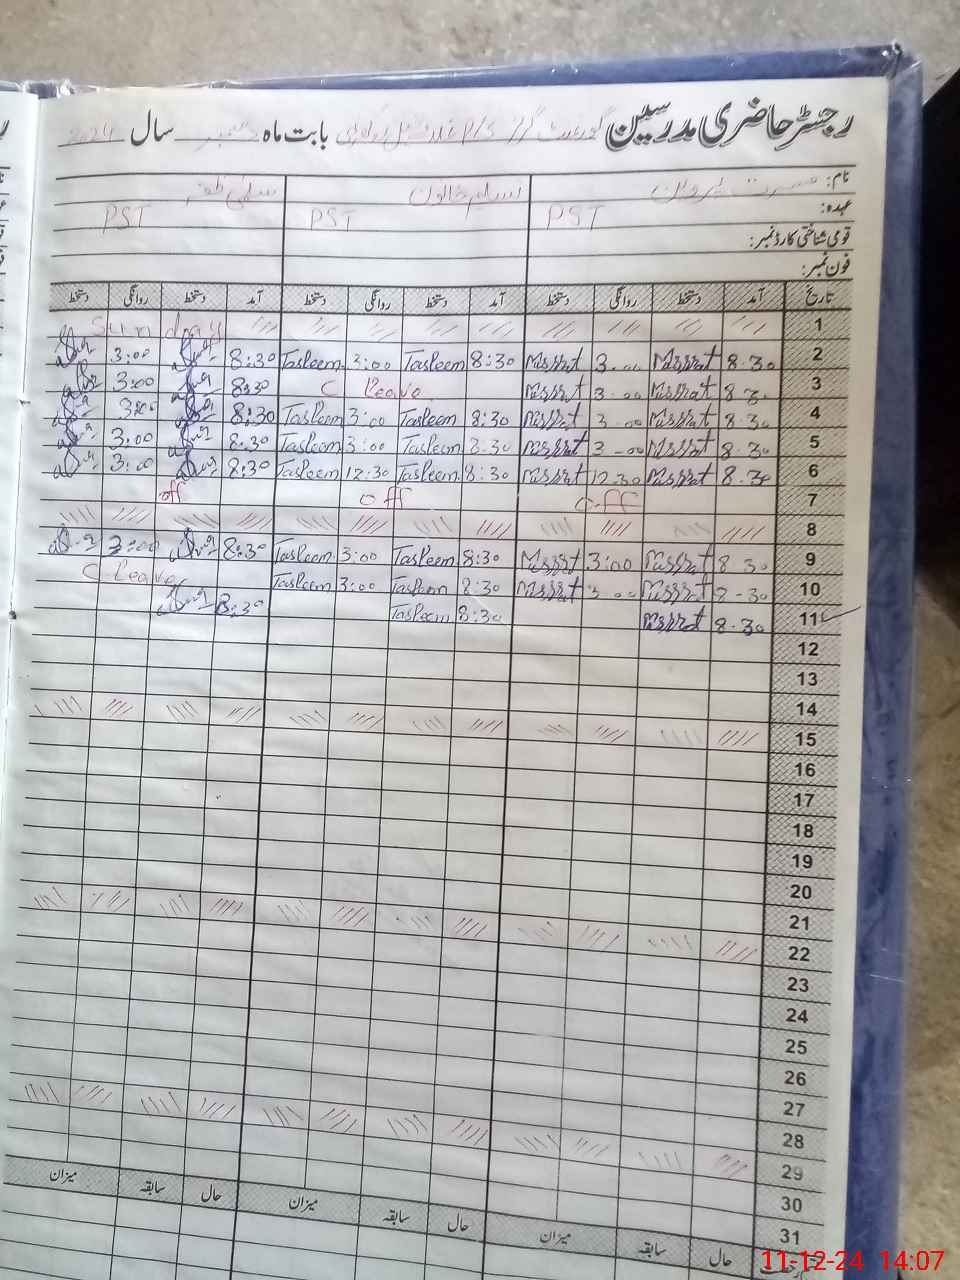 رجسٹر حاضری مدرسین گورنمنٹ گرلز P/S بابت ماہ دسمبر سال 2024
نام: مسرت پروین تسلیم خاتون سلمیٰ ظفر
عہدہ: PST PST PST
قومی شناختی کارڈ نمبر:
فون نمبر:
تاریخ آمد دستخط روانگی دستخط آمد دستخط روانگی دستخط آمد دستخط روانگی دستخط
1 Sunday
2 8.30 Missrat 3.00 Missrat 8:30 Tasleem 3:00 Tasleem 8:30 3:00
3 8.30 Missrat 3.00 Missrat C Leave 8:30 3:00
4 8.30 Missrat 3.00 Missrat 8:30 Tasleem 3:00 Tasleem 8:30 3:00
5 8.30 Missrat 3.00 Missrat 8.30 Tasleem 3:00 Tasleem 8:30 3:00
6 8.30 Missrat 12.30 Missrat 8:30 Tasleem 12:30 Tasleem 8:30 3:00
7 off off off
8
9 8.30 Missrat 3:00 Missrat 8:30 Tasleem 3:00 Tasleem 8:30 3:00
10 8-30 Missrat 3.00 Missrat 8:30 Tasleem 3:00 Tasleem C Leave
11 8.30 Missrat 8:30 Tasleem 8:30
12
13
14
15
16
17
18
19
20
21
22
23
24
25
26
27
28
29
30
31
حال سابقہ میزان حال سابقہ میزان حال سابقہ میزان
11-12-24 14:07